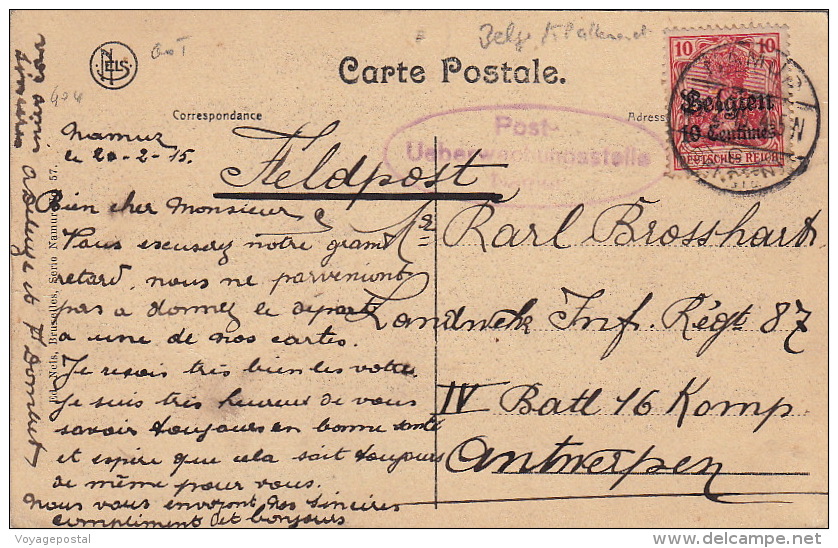 NELS
Carte Postale.
Correspondance
Adresse
10 10
Belgien
10 Centimes
DEUTSCHES REICH
Post-
Ueberwachungsstelle
Namur
404
Namur
le 20-2-15.
Feldpost
Bien cher Monsieur
Vous excuserez notre grand
retard, nous ne parvenions
pas a donnez le départ
a une de nos cartes.
Je reçois très bien les votres
Je suis très heureux de vous
savoir toujours en bonne santé
et espère que cela soit toujours
de même pour vous.
Nous vous envoront nos sincères
compliment et bonjours
Mr Karl Brosshart
Landwehr Inf. Régt 87
IV Batl 16 Komp
Antwerpen
Ed. Nels, Bruxelles, Serie Namur 57.
vos amis
Voyagepostal
delcampe.net